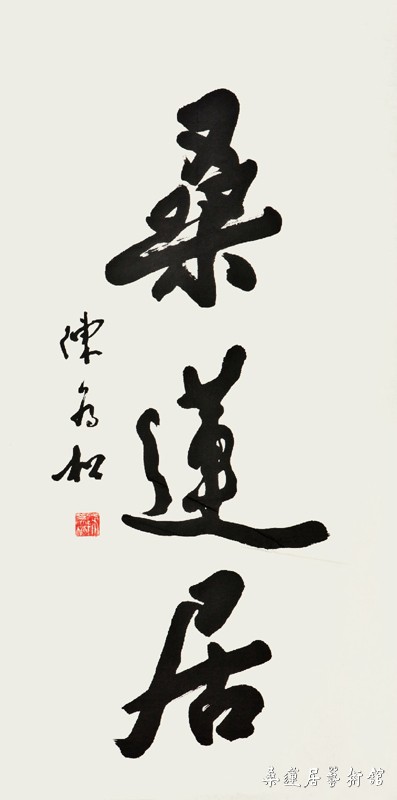 桑蓮居
陳 松
桑蓮居藝術館